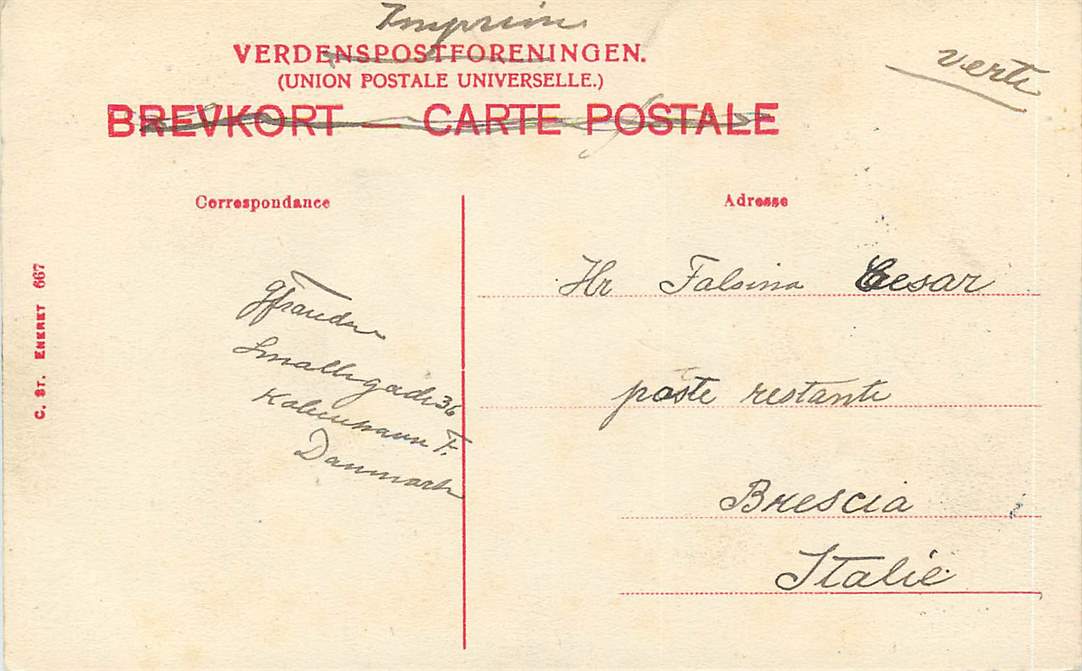 Imprime
verte
VERDENSPOSTFORENINGEN.
(UNION POSTALE UNIVERSELLE.)
BREVKORT — CARTE POSTALE
Correspondance
Adresse
C. ST. ENERET 667
Smallegade 36
København F.
Danmark
Hr Falsina Cesar
poste restante
Brescia
Italie